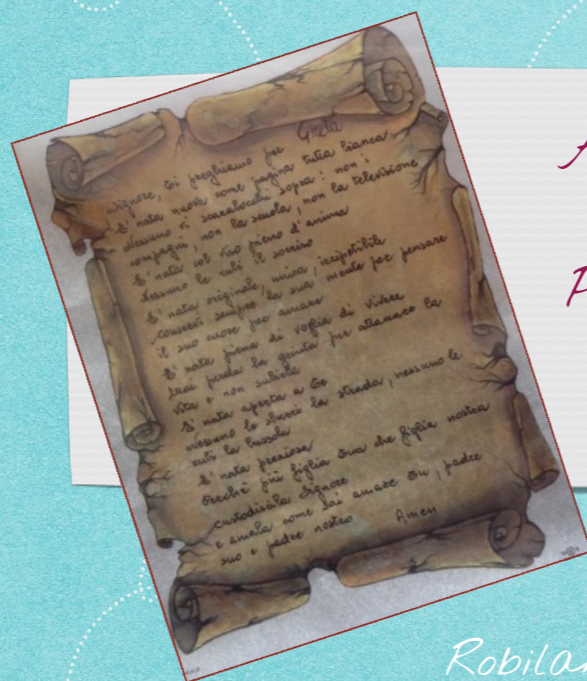 Signore, ti preghiamo per Greta
E' nata nuova come pagina tutta bianca
nessuno vi scarabocchi sopra: non i
compagni, non la scuola, non la televisione
E' nata col viso pieno d'anima
nessuno le rubi il sorriso
E' nata originale, unica, irripetibile
conservi sempre la sua mente per pensare
il suo cuore per amare
E' nata piena di voglia di vivere
mai perda la grinta per attaccare la
vita e non subirla
E' nata aperta a Te
nessuno le sbarri la strada, nessuno le
rubi la bussola
E' nata preziosa
Perché più figlia tua che figlia nostra
custodiscila Signore
e amala come sai amare tu, padre
suo e padre nostro Amen